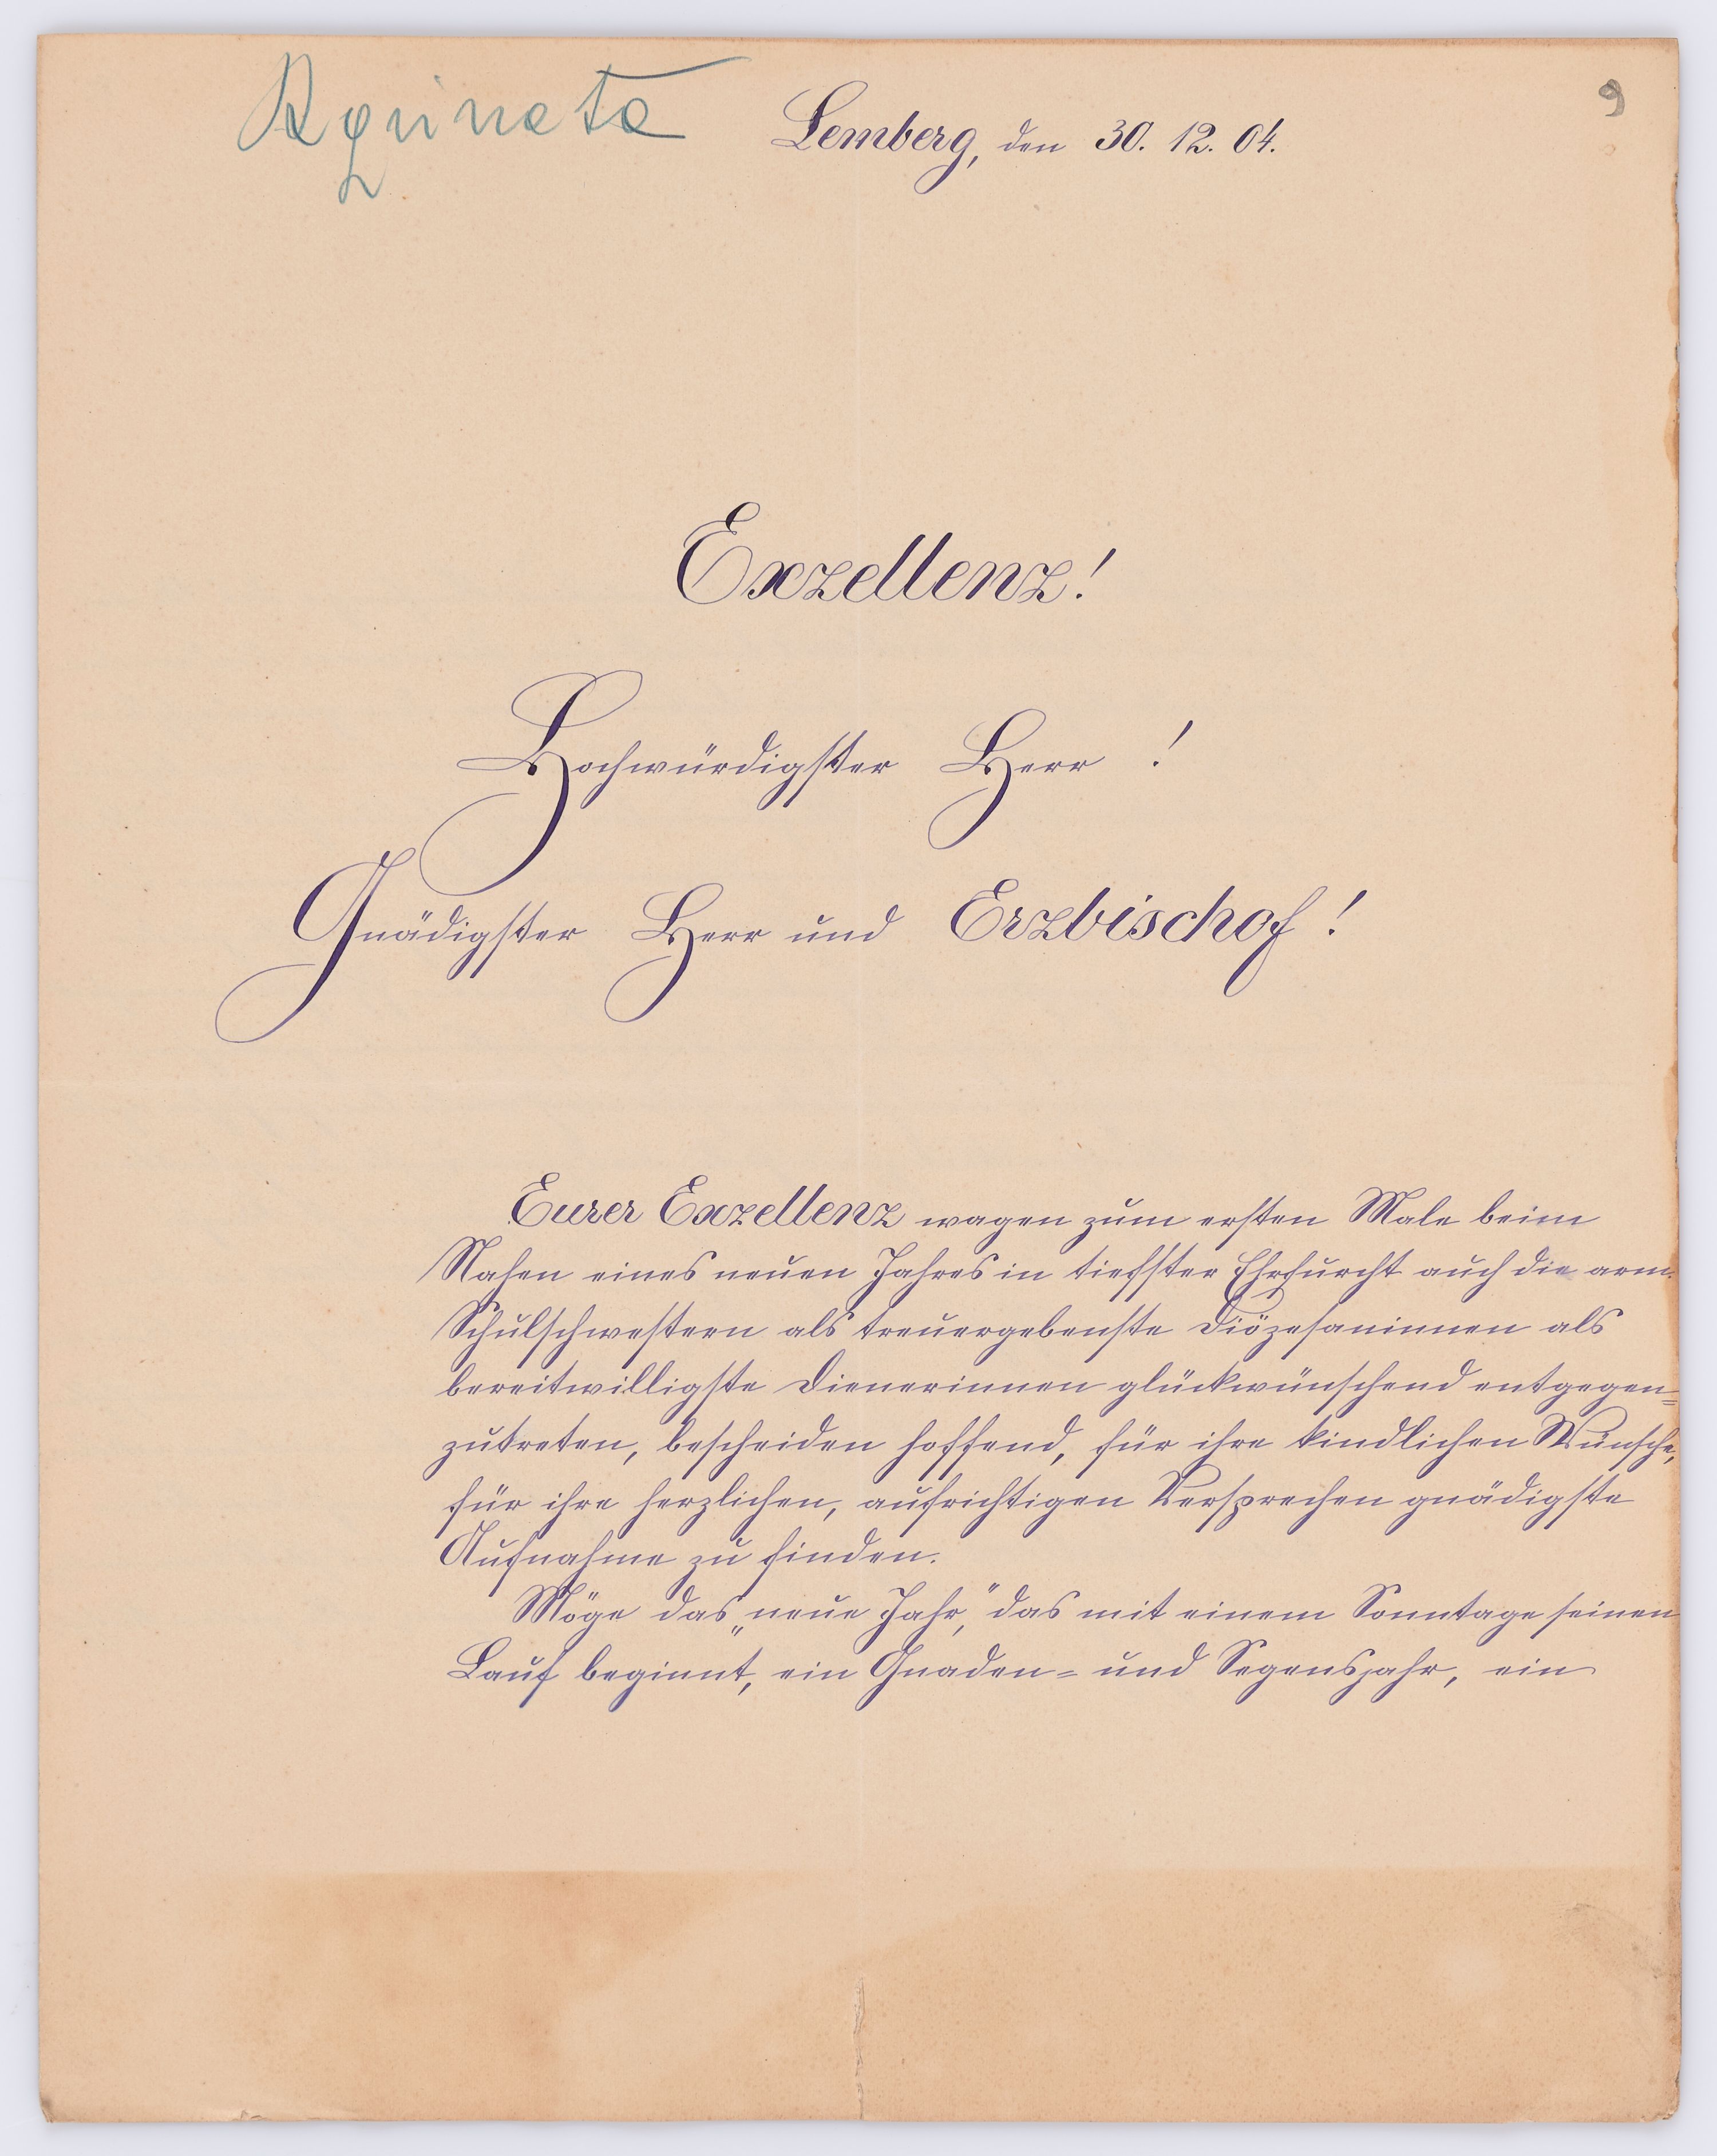 Aquinata
Lemberg, den 30. 12. 04.
9
Exzellenz!
Hochwürdigster Herr !
Gnädigster Herr und Erzbischof !
Eurer Exzellenz wagen zum ersten Male beim
Nahen eines neuen Jahres in tiefster Ehrfurcht auch die arm.
Schulschwestern als treuergebenste Diözesaninnen als
bereitwilligste Dienerinnen glückwünschend entgegen=
zutreten, bescheiden hoffend, für ihre kindlichen Wünsche,
für ihre herzlichen, aufrichtigen Versprechen gnädigste
Aufnahme zu finden.
Möge das „neue Jahr," das mit einem Sonntage seinen
Lauf beginnt, ein Gnaden= und Segensjahr, ein